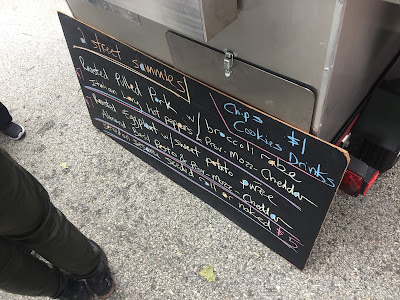 2 street sammies
Chips $1
Cookies Drinks
Roasted Pulled Pork w/ broccoli rabe
Italian long hot peppers & Prov-Mozz-Cheddar
Roasted Eggplant w/ sweet potato puree
Almond Basil Pesto & Prov-Mozz-Cheddar
Sesame Seeded roll or naked $5